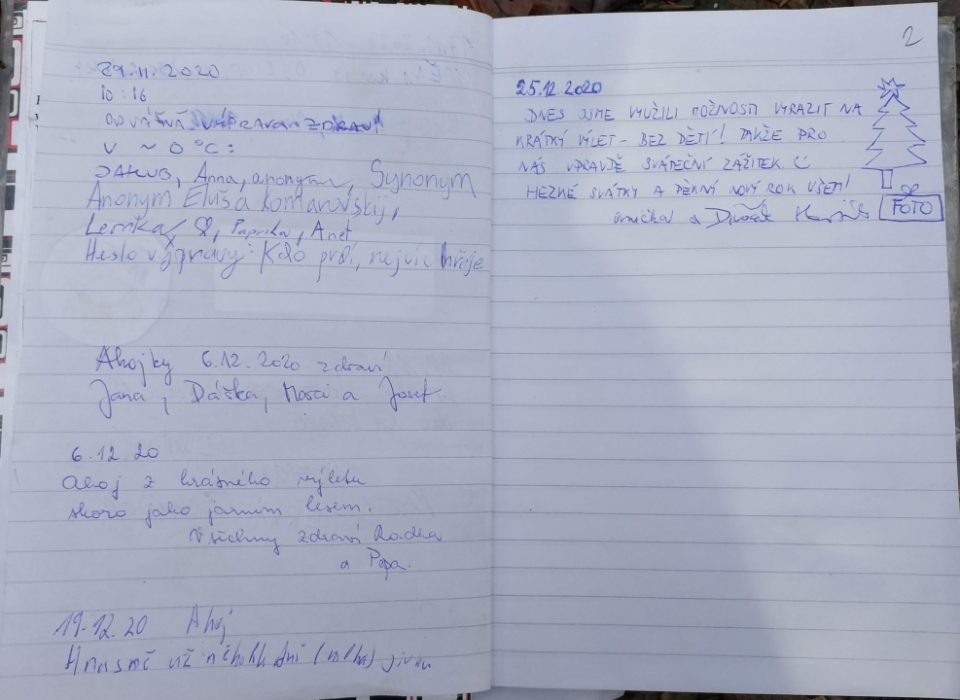 29.11.2020
10:16
ODVÁŽNÁ VÝPRAVA ZDRAVÍ
V ~ 0 °C:
JAKUB, Anna, anonym, Synonym
Anonym Eluša Komarovskij,
Lernka, Paprika, Anet
Heslo výpravy: Kdo prdí, nejvíc hřeje
Ahojky 6.12.2020 zdraví
Jana, Dáška, a Josef
6.12.20
Ahoj z krásného výletu
skoro jako jarním lesem.
Všechny zdraví Radka
a Pepa.
19.12.20 Ahoj
Hnusně už několik dní (mlha)
2
25.12.2020
DNES JSME VYUŽILI MOŽNOSTI VYRAZIT NA
KRÁTKÝ VÝLET - BEZ DĚTÍ! TAKŽE PRO
NÁS VPRAVDĚ SVÁTEČNÍ ZÁŽITEK.
HEZKÉ SVÁTKY A PĚKNÝ NOVÝ ROK VŠEM!
a
FOTO